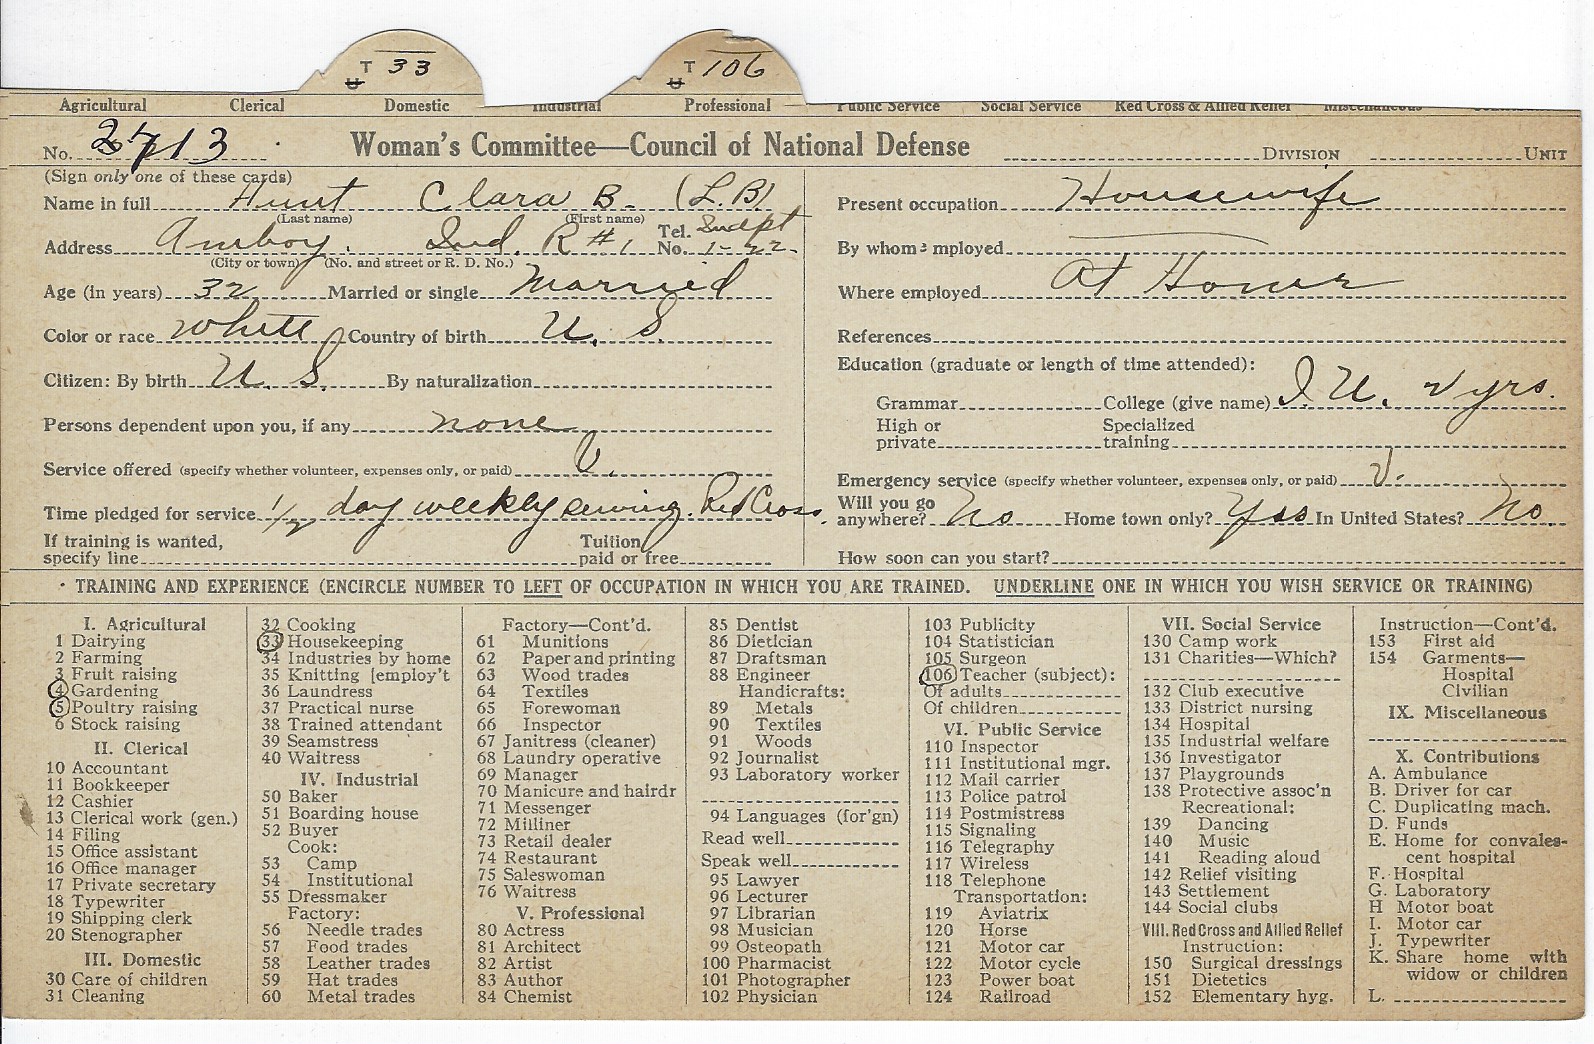 T 33 T 106
U U
Agricultural Clerical Domestic Industrial Professional Public Service Social Service Red Cross & Allied Relief Miscellaneous
No. 2713 Woman's Committee—Council of National Defense DIVISION UNIT
(Sign only one of these cards)
Name in full Hunt Clara B. (L.B)
(Last name) (First name)
Address Amboy. Ind. R #1 Tel. No. Indpt 1-22-
(City or town) (No. and street or R. D. No.)
Age (in years) 32 Married or single Married
Color or race White Country of birth U. S.
Citizen: By birth U. S. By naturalization
Persons dependent upon you, if any none
Service offered (specify whether volunteer, expenses only, or paid) V.
Time pledged for service 1/2 day weekly sewing. Red Cross.
If training is wanted, specify line Tuition paid or free
Present occupation Housewife
By whom employed
Where employed At Home
References
Education (graduate or length of time attended):
Grammar College (give name) I. U. 2 yrs.
High or private Specialized training
Emergency service (specify whether volunteer, expenses only, or paid) V.
Will you go anywhere? No Home town only? Yes In United States? No.
How soon can you start?
TRAINING AND EXPERIENCE (ENCIRCLE NUMBER TO LEFT OF OCCUPATION IN WHICH YOU ARE TRAINED. UNDERLINE ONE IN WHICH YOU WISH SERVICE OR TRAINING)
I. Agricultural
1 Dairying
2 Farming
3 Fruit raising
4 Gardening
5 Poultry raising
6 Stock raising
II. Clerical
10 Accountant
11 Bookkeeper
12 Cashier
13 Clerical work (gen.)
14 Filing
15 Office assistant
16 Office manager
17 Private secretary
18 Typewriter
19 Shipping clerk
20 Stenographer
III. Domestic
30 Care of children
31 Cleaning
32 Cooking
33 Housekeeping
34 Industries by home
35 Knitting [employ't
36 Laundress
37 Practical nurse
38 Trained attendant
39 Seamstress
40 Waitress
IV. Industrial
50 Baker
51 Boarding house
52 Buyer
Cook:
53 Camp
54 Institutional
55 Dressmaker
Factory:
56 Needle trades
57 Food trades
58 Leather trades
59 Hat trades
60 Metal trades
Factory—Cont'd.
61 Munitions
62 Paper and printing
63 Wood trades
64 Textiles
65 Forewoman
66 Inspector
67 Janitress (cleaner)
68 Laundry operative
69 Manager
70 Manicure and hairdr
71 Messenger
72 Milliner
73 Retail dealer
74 Restaurant
75 Saleswoman
76 Waitress
V. Professional
80 Actress
81 Architect
82 Artist
83 Author
84 Chemist
85 Dentist
86 Dietician
87 Draftsman
88 Engineer
Handicrafts:
89 Metals
90 Textiles
91 Woods
92 Journalist
93 Laboratory worker
94 Languages (for'gn)
Read well
Speak well
95 Lawyer
96 Lecturer
97 Librarian
98 Musician
99 Osteopath
100 Pharmacist
101 Photographer
102 Physician
103 Publicity
104 Statistician
105 Surgeon
106 Teacher (subject):
Of adults
Of children
VI. Public Service
110 Inspector
111 Institutional mgr.
112 Mail carrier
113 Police patrol
114 Postmistress
115 Signaling
116 Telegraphy
117 Wireless
118 Telephone
Transportation:
119 Aviatrix
120 Horse
121 Motor car
122 Motor cycle
123 Power boat
124 Railroad
VII. Social Service
130 Camp work
131 Charities—Which?
132 Club executive
133 District nursing
134 Hospital
135 Industrial welfare
136 Investigator
137 Playgrounds
138 Protective assoc'n
Recreational:
139 Dancing
140 Music
141 Reading aloud
142 Relief visiting
143 Settlement
144 Social clubs
VIII. Red Cross and Allied Relief
Instruction:
150 Surgical dressings
151 Dietetics
152 Elementary hyg.
Instruction—Cont'd.
153 First aid
154 Garments—
Hospital
Civilian
IX. Miscellaneous
X. Contributions
A. Ambulance
B. Driver for car
C. Duplicating mach.
D. Funds
E. Home for convales-
cent hospital
F. Hospital
G. Laboratory
H Motor boat
I. Motor car
J. Typewriter
K. Share home with
widow or children
L.